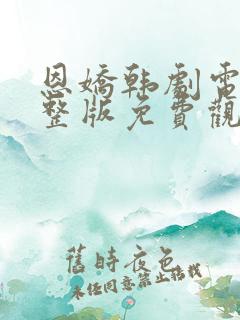 恩嬌韩劇電
整版免費觀
舊時夜色
未经同意禁止搭载